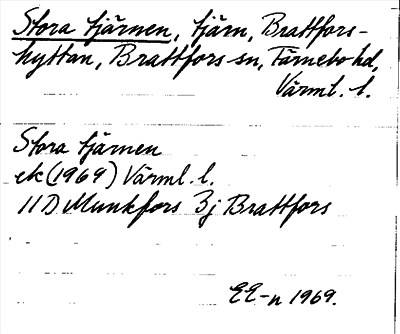 Stora tjärnen, tjärn, Brattfors-
hyttan, Brattfors sn, Färnebo hd,
Värml. l.
Stora tjärnen
ek (1969) Värml. l.
11D Munkfors 3j Brattfors
EE-n 1969.